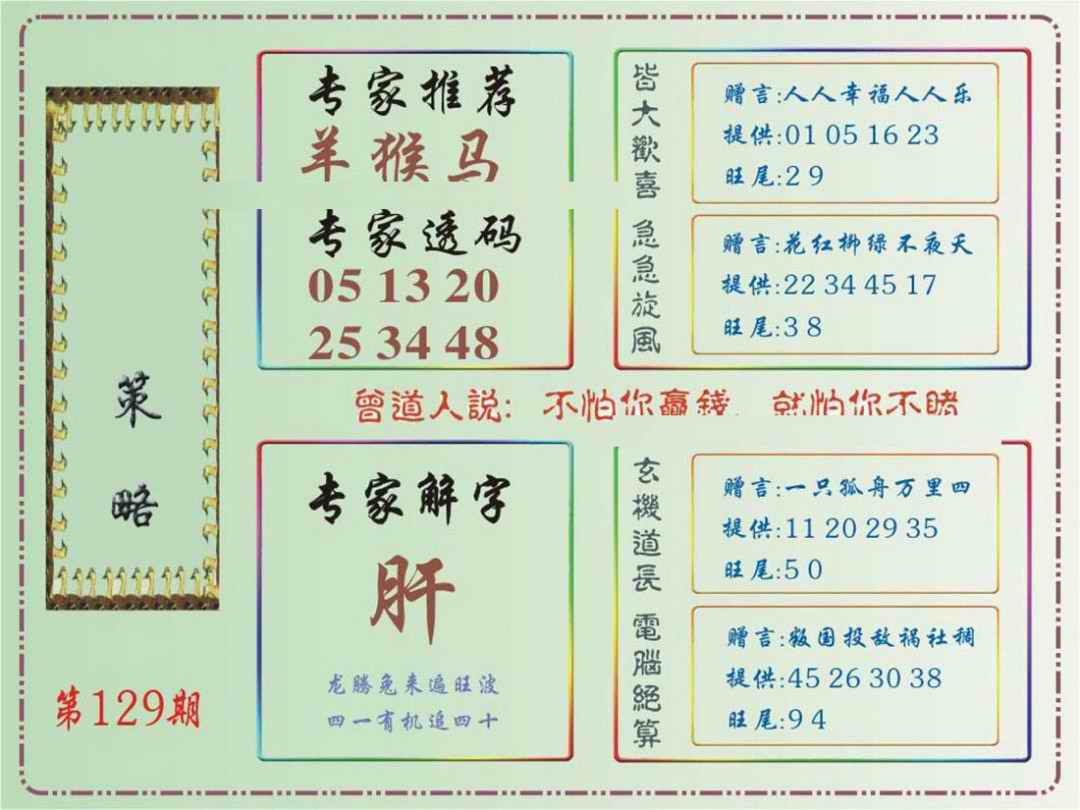 策略
第129期
专家推荐
羊猴马
专家透码
05 13 20
25 34 48
皆大歡喜
赠言:人人幸福人人乐
提供:01 05 16 23
旺尾:2 9
急急旋風
赠言:花红柳绿不夜天
提供:22 34 45 17
旺尾:3 8
曾道人説: 不怕你贏錢, 就怕你不賭
专家解字
肝
龙腾兔来遍旺波
四一有机追四十
玄機道長
赠言:一只孤舟万里四
提供:11 20 29 35
旺尾:5 0
電腦絕算
赠言:叛国投敌祸社稠
提供:45 26 30 38
旺尾:9 4